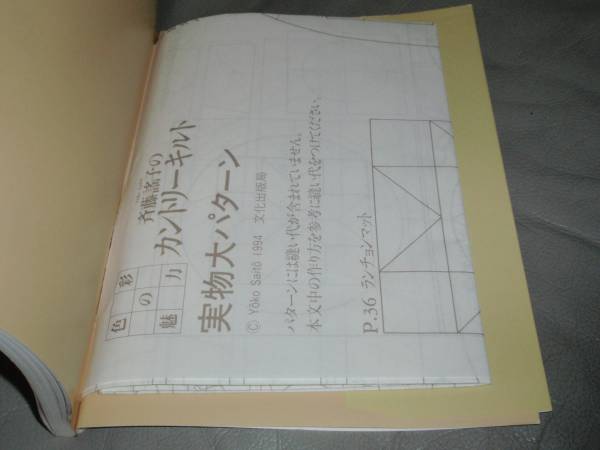 色彩の魅力
斉藤謠子の
カントリーキルト
実物大パターン
© Yōko Saitō 1994 文化出版局
パターンには縫い代が含まれていません。
本文中の作り方を参考に縫い代をつけてください。
P.36 ランチョンマット